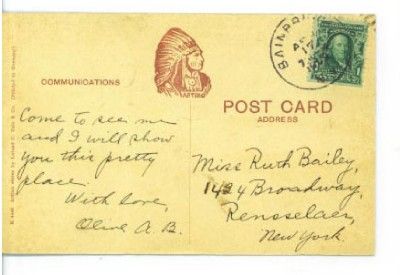 COMMUNICATIONS
POST CARD
ADDRESS
Come to see me
and I will show
you this pretty
place.
With love,
Olive A. B.
Miss Ruth Bailey,
1424 Broadway,
Rensselaer,
New York.